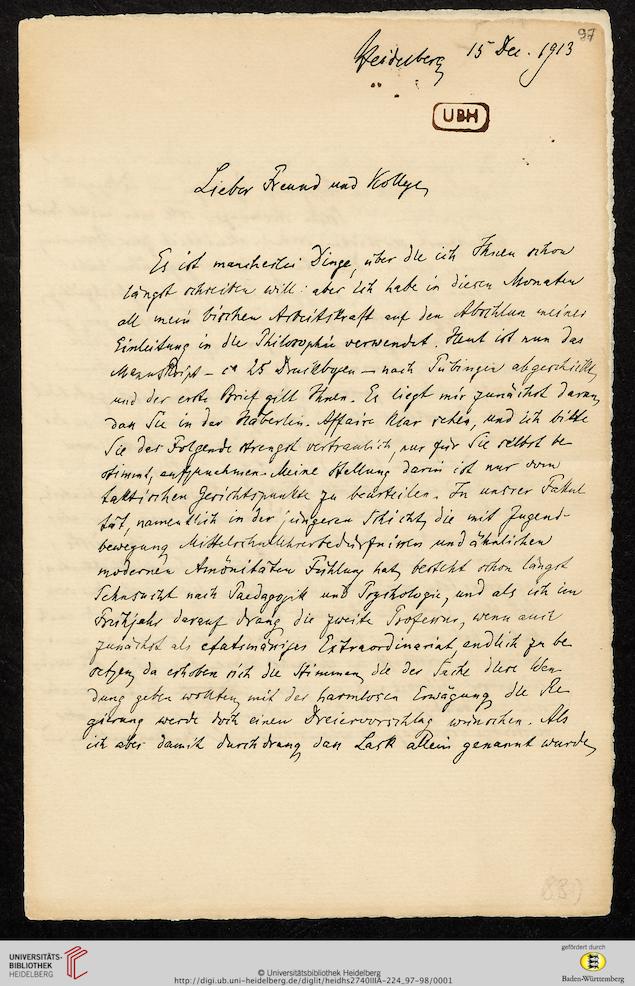 97
Heidelberg 15 Dec. 1913
UBH
Lieber Freund und Kollege,
Es ist mancherlei Dinge, über die ich Ihnen schon
längst schreiben will: aber ich habe in diesen Monaten
all mein bischen Arbeitskraft auf den Abschluss meiner
Einleitung in die Philosophie verwendet. Heut ist nun das
Manuskript – ca 25 Druckbogen – nach Tübingen abgeschickt,
und der erste Brief gilt Ihnen. Es liegt mir zunächst daran,
dass Sie in der Häberlin-Affaire klar sehen, und ich bitte
Sie das Folgende strengst vertraulich, nur für Sie selbst be
stimmt, aufzunehmen. Meine Stellung darin ist nur vom
taktischen Gesichtspunkte zu beurteilen. In unsrer Fakul
tät, namentlich in der jüngeren Schicht, die mit Jugend-
bewegung, Mittelschullehrerbedürfnissen und ähnlichen
modernen Amönitäten Fühlung hat, besteht schon längst
Sehnsucht nach Paedagogik und Psychologie, und als ich im
Frühjahr darauf drang, die zweite Professur, wenn auch
zunächst als etatsmässiges Extraordinariat, endlich zu be
setzen, da erhoben sich die Stimmen, die der Sache diese Wen
dung geben wollten, mit der harmlosen Erwägung, die Re
gierung werde doch einen Dreiervorschlag wünschen. Als
ich aber damit durchdrang, dass Lask allein genannt wurde,
83)
UNIVERSITÄTS-
BIBLIOTHEK
HEIDELBERG
© Universitätsbibliothek Heidelberg
http://digi.ub.uni-heidelberg.de/diglit/heidhs2740IIIA-224_97-98/0001
gefördert durch
Baden-Württemberg